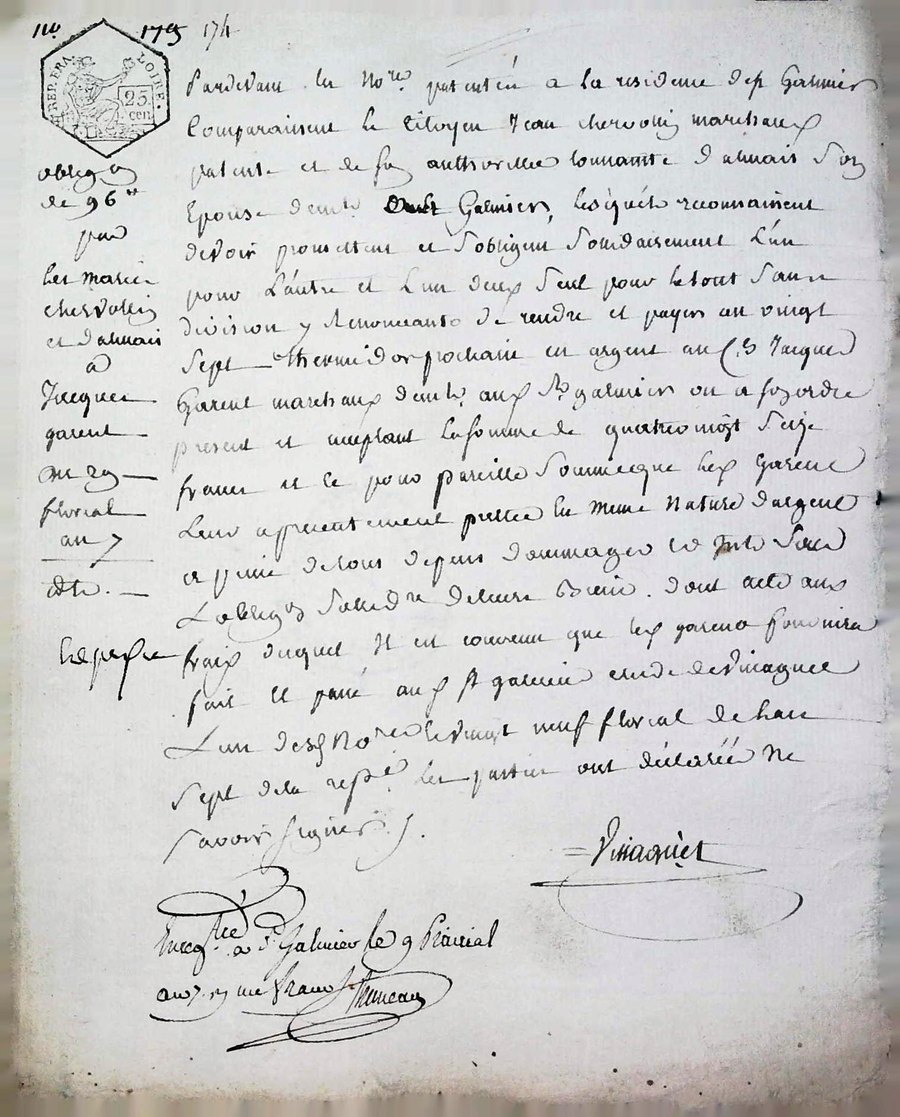 no 1795 174
REP. FRA. LOIRE.
25 cen
obligon
de 96tt
par
les mariés
chervollin
et dalmais
a
Jacques
garent
du 29
florial
an 7
Pardevant les Nores patentés a la residence de st Galmier
Comparaissent le Citoyen Jean marchaux
patente et de luy authorizée Dalmais son
Epouse demt Galmier, lesquels reconnaissent
devoir promettent et sobligent Solidairement L'un
pour L'autre et L'un deux seul pour le tout sans
division y Renonceants de rendre et payer au vingt
sept thermidor prochain en argent au Cen Jacques
Garent marchaux demt aux St galmier ou a son ordre
present et acceptant la somme de quatrevingt seize
francs et ce pour pareille somme que led Garent
Leur a presentement pretté en meme Nature dargent
a peine de tous depens dommages
Lobligon Solidre de leurs Biens. dont acte aux
frais duquel Il est convenu que led garent fournira
fait et passé aud st galmier etude de Vinagnet
L'un desd Nores le vingt neuf florial de lan
sept de la repe. les parties ont déclarées Ne
savoir signer
Vinagnet
Enregtré a St Galmier le 9 Prairial
an 7. un franc